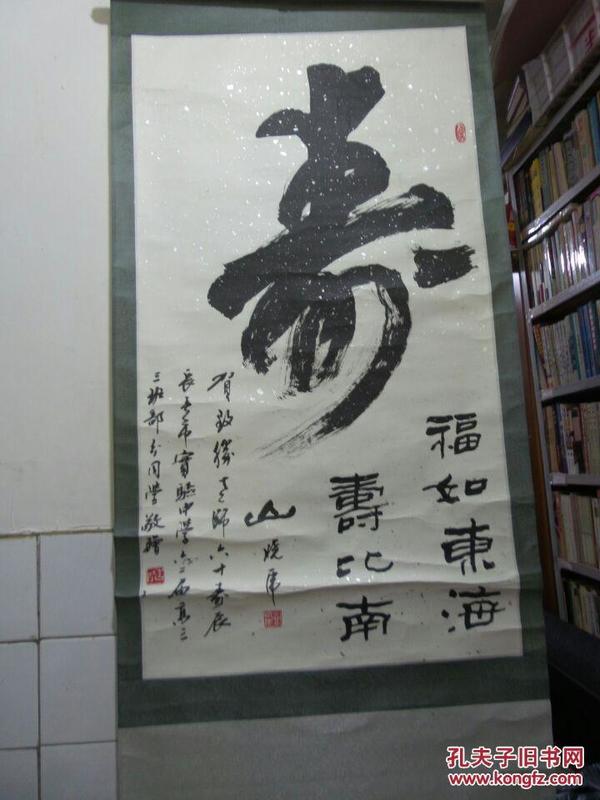 寿
福如東海
壽比南
山
賀敬勝老師六十壽辰
長春市實驗中學六二届高三
三班部分同學敬贈
孔夫子旧书网
www.kongfz.com